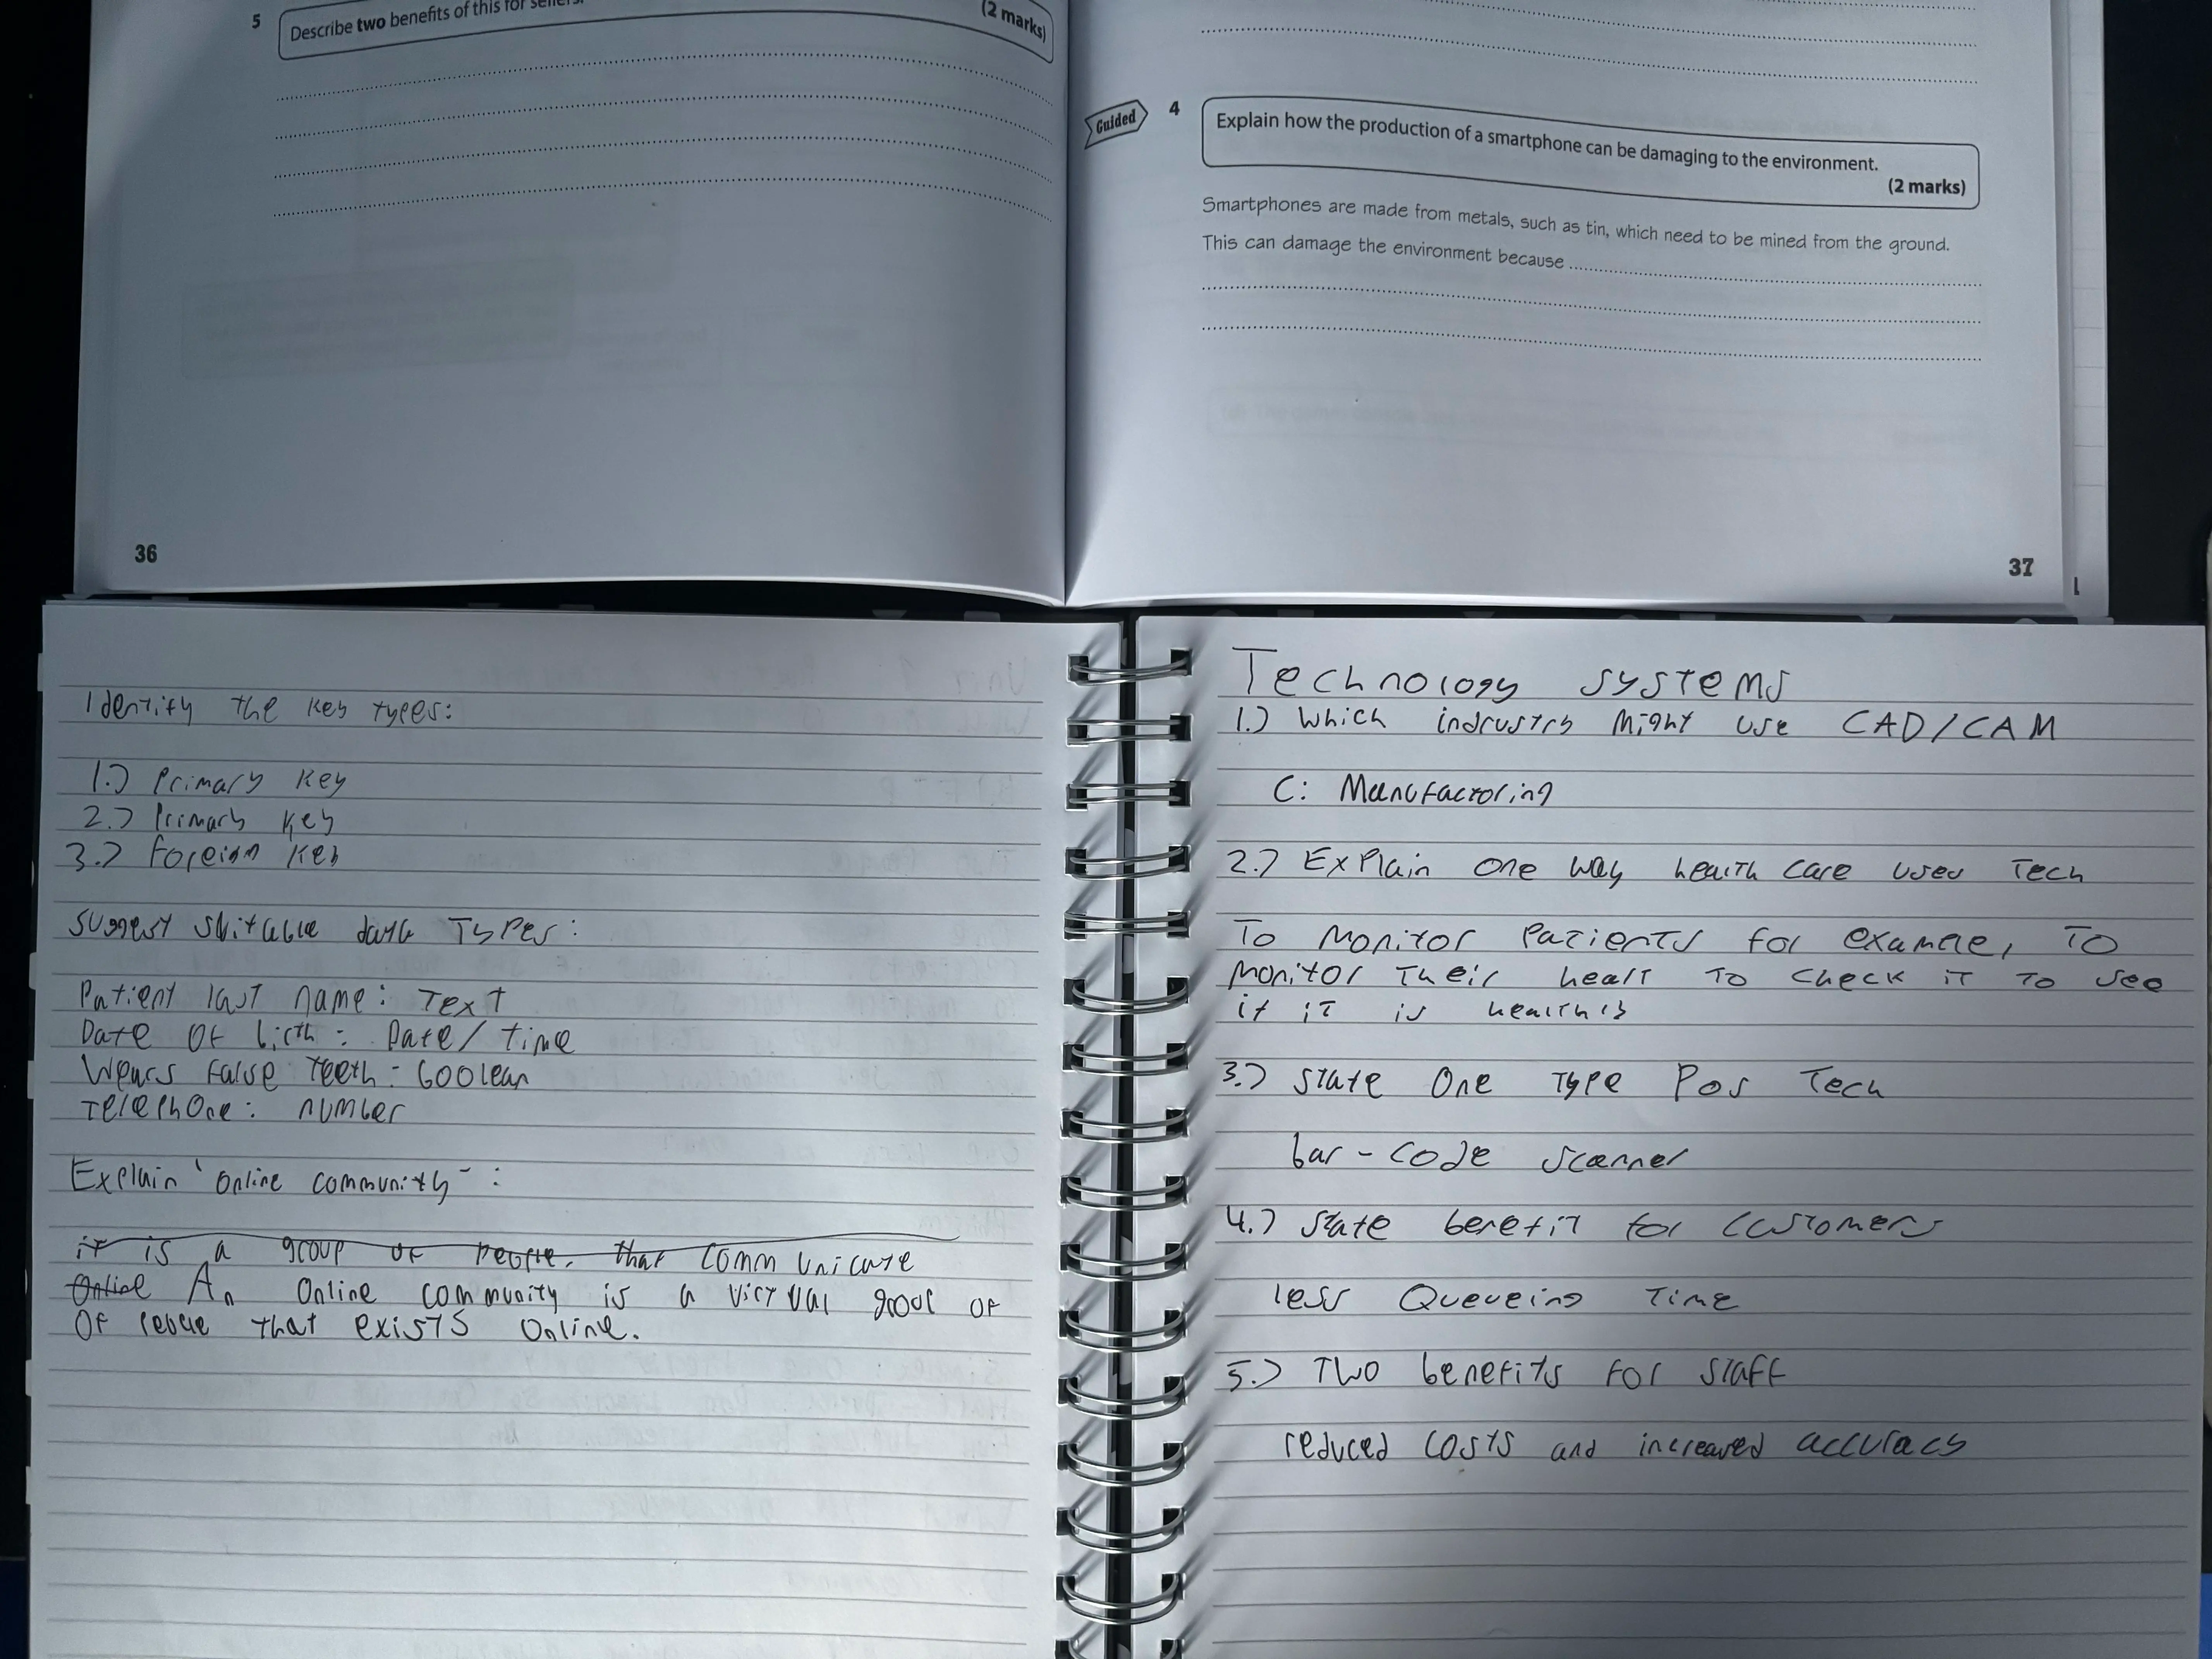 5 Describe two benefits of this for sellers.
(2 marks)
36
Guided
4 Explain how the production of a smartphone can be damaging to the environment.
(2 marks)
Smartphones are made from metals, such as tin, which need to be mined from the ground.
This can damage the environment because
37
Identify the key types:
1.) Primary key
2.) Primary key
3.) Foreign key
Suggest suitable data types:
Patient last name: Text
Date of birth: Date/time
Wears false teeth: boolean
Telephone: number
Explain 'online community':
it is a group of people. that communicate
online An online community is a virtual group of
of people that exists online.
Technology systems
1.) Which indrustry might use CAD/CAM
C: Manufactoring
2.) Explain one way health care uses tech
To monitor patients for example, to
monitor their heart to check it to see
if it is healthy
3.) State one type POS tech
bar-code scanner
4.) State benefit for customers
less Queueing time
5.) Two benefits for staff
reduced costs and increased accuracy